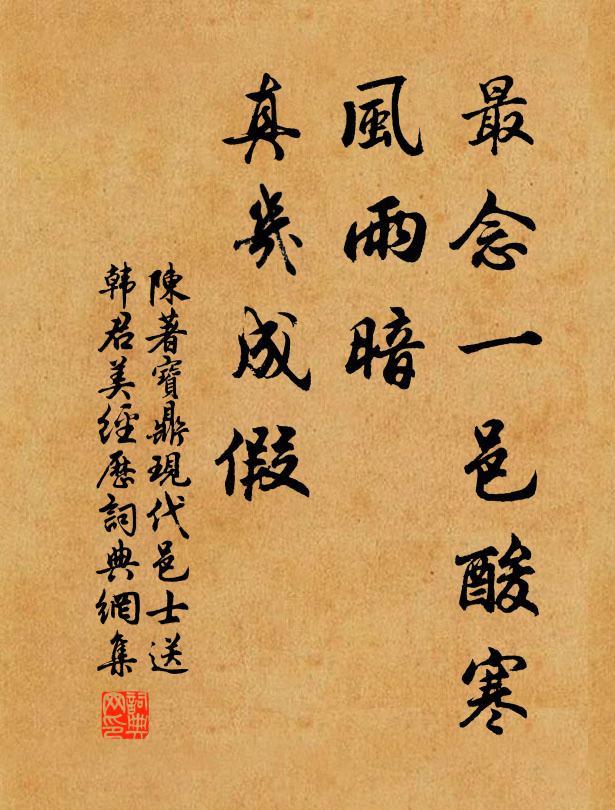 最念一邑酸寒
風雨暗
真幾成假
陳著寶鼎現代邑士送
韩君美經歷詞典網集
詞典
网印